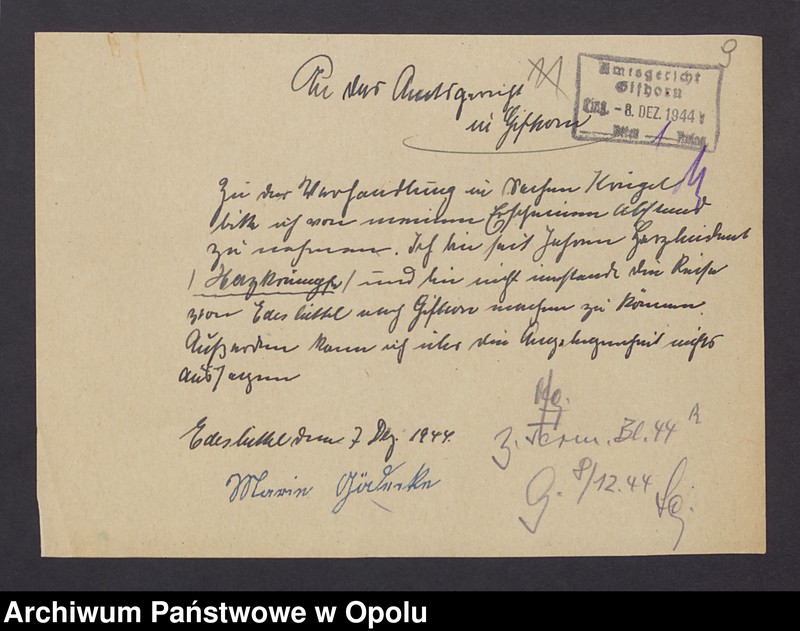 9
An das Amtsgericht
in Gifhorn
Amtsgericht
Gifhorn
Eing. - 8. DEZ. 1944
Zu der Verhandlung in Sachen Krügel
bitte ich von meinem Erscheinen Abstand
zu nehmen. Ich bin seit Jahren Herzleidend
/ Herzkrämpfe / und bin nicht imstande die Reise
von Edesbüttel nach Gifhorn machen zu können.
Außerdem kann ich über die Angelegenheit nichts
aussagen
Edesbüttel den 7 Dez. 1944.
Marie Gädecke
z. Term. Bl. 44 R
G. 8/12.44
Archiwum Państwowe w Opolu